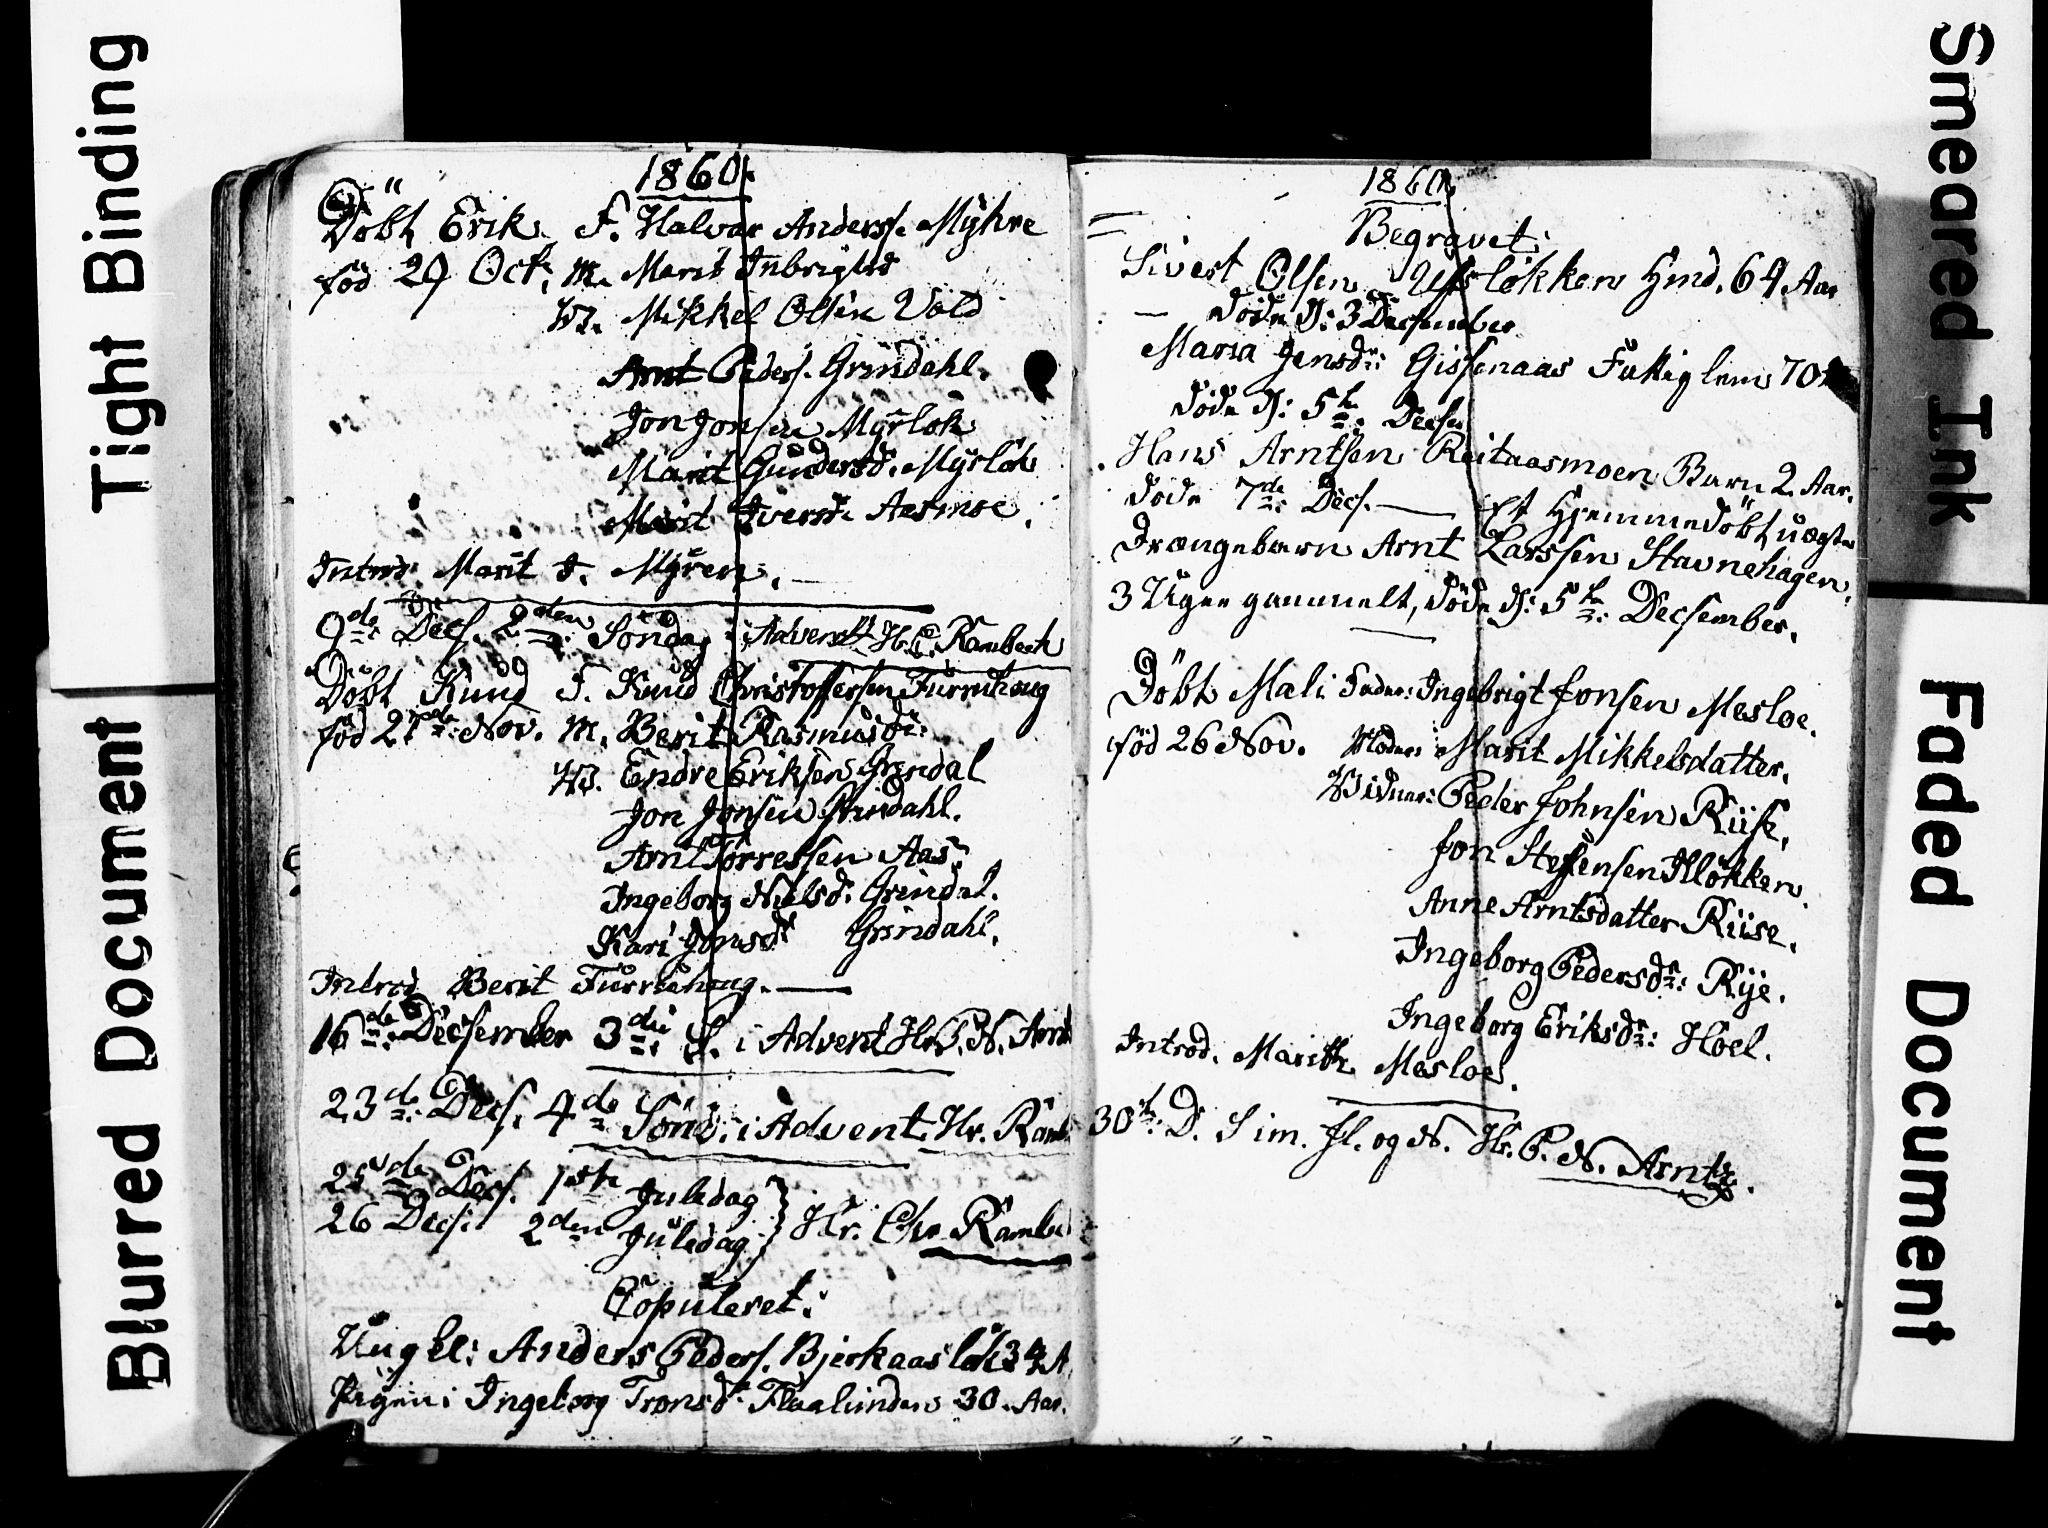 Tight Binding
Blurred Document
1860.
Döbt Erik F. Halvar Anders. Myhre
föd 29 Oct: M. Marit Inbrigtsd
W. Mikkel Olsen Vold
Arnt Peders. Grindahl.
Jon Jonsen Myrløk
Marit Gundersd. Mysløk
Marit Iversd. Aasmoe.
Introd. Marit I. Myren.
9de: Decs. 2den: Söndag i Advent Hr. C. Rambech
Döbt Knud F. Knud Christoffersen Furruhaug
föd 27de: Nov. M. Berit Rasmusdr:
W. Endre Eriksen Grindal
Jon Jonsen Grindahl.
Arnt Torressen Aas.
Ingeborg Nielsd: Grindal.
Kari Jonsdr Grindahl.
Introd Berit Furruhaug.
16de: Decsember 3die: S. i Advent Hr. P. N. Arnt
23de: Decs. 4de Sönd. i Advent. Hr. Ramb
25de Decs. 1ste Juledag
26 Decs: 2den Juledag } Hr. Chr Rambe
Copuleret:
Ungkl: Anders Peders. Bjerkaasløk 34 A.
Pigen: Ingeborg Tronsdr. Flaalienden 30. Aar.
1860.
Begravet:
Sivert Olsen Ufsløkken Hmd. 64 Aar
döde d: 3 Decsember
Maria Jensdr: Gissenaas Fattiglem 70
döde d: 5te: Decsr
Hans Arntsen Reitaasmoen Barn 2 Aar.
döde 7de: Decs. Et Hjemmedöbt uægte
Drængebarn Arnt Larssen Stavnehagen,
3 Uger gammelt, döde d: 5te: Decsember.
Döbt Mali Fader: Ingebrigt Jonsen Mesloe.
föd 26 Nov. Moder: Marit Mikkelsdatter.
Vidner: Peder Johnsen Riise.
Jon Steffensen Kløkken.
Anne Arntsdatter Riise.
Ingeborg Pedersdr: Rije.
Ingeborg Eriksdr: Hoel.
Introd. Marith Mesloe.
30te: D. S im. Jl. og N. Hr. P. N. Arntz.
Smeared Ink
Faded Document